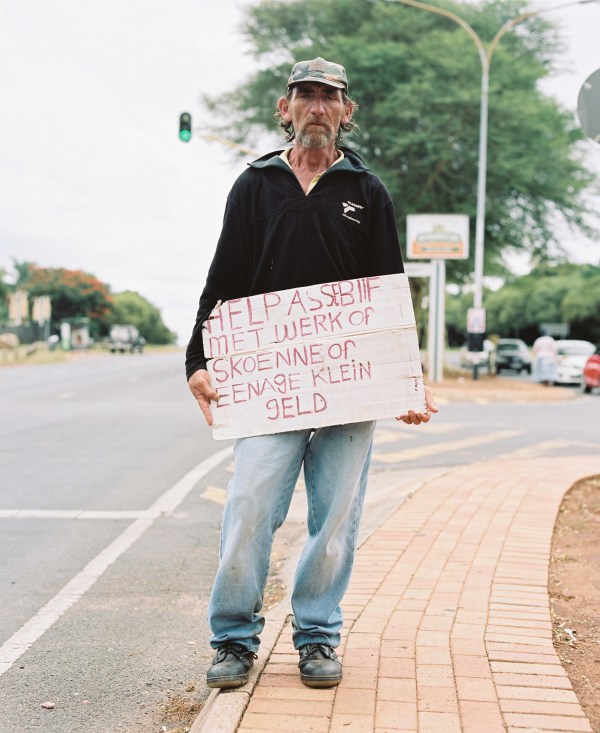 HELP ASSEBIIF
MET WERK OF
SKOENNE OF
EENAGE KLEIN
GELD